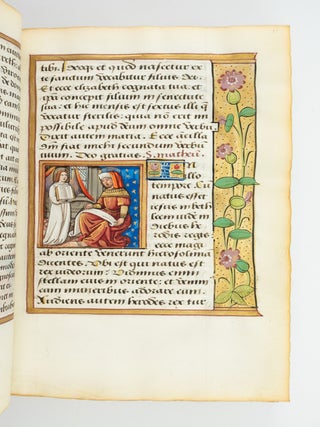 tibi. Ideoq et quod nascetur ex
te sanctum vocabitur filius dei.
Et ecce elizabeth cognata tua et
ipa concepit filium in senectute
sua: et hic mensis est sextus illi q
vocatur sterilis: quia non erit im
possibile apud deum omne verbu
Dixit autem maria. Ecce ancilla
dni fiat michi secundum verbu
tuum. Deo gratias. S. mathei.
In illo
tempore Cu
natus esset
iesus in beth
leem iude in
diebus he
regis ecce magi
ab oriente venerunt hierosolima
dicentes. Ubi est qui natus est
rex iudeorum: Vidimus enim
stellam eius in oriente: et venim
cum muneribus adorare eum.
Audiens autem herodes rex tur